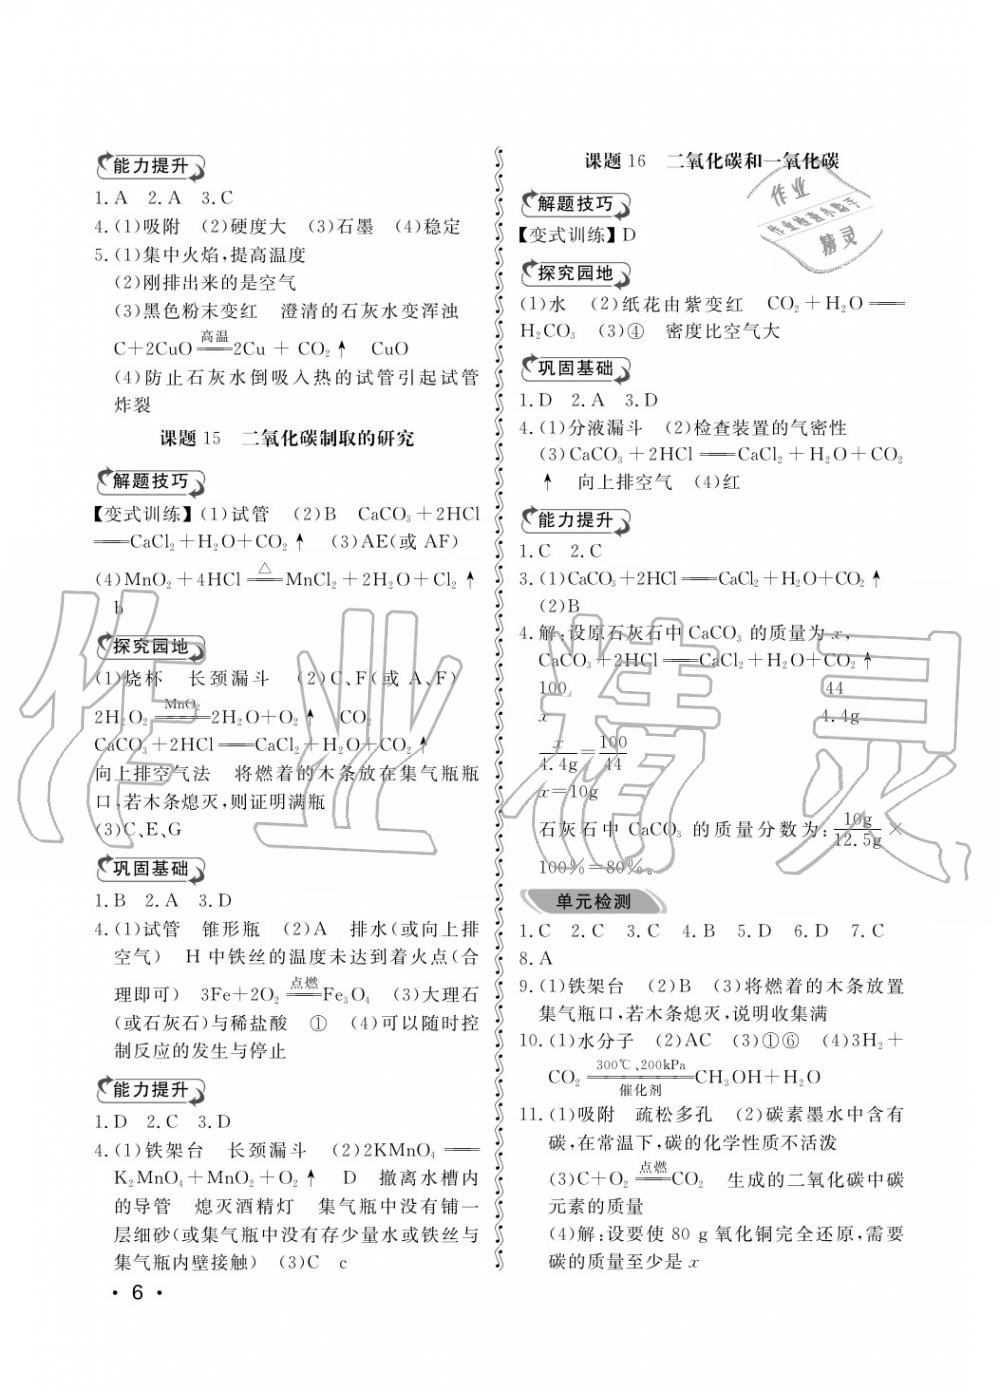 能力提升
1. A　2. A　3. C
4. (1)吸附　(2)硬度大　(3)石墨　(4)稳定
5. (1)集中火焰,提高温度
(2)刚排出来的是空气
(3)黑色粉末变红　澄清的石灰水变浑浊
C+2CuO 高温══ 2Cu + CO₂↑　CuO
(4)防止石灰水倒吸入热的试管引起试管
炸裂
课题 15　二氧化碳制取的研究
解题技巧
【变式训练】(1)试管　(2)B　CaCO₃+2HCl
══CaCl₂+H₂O+CO₂↑　(3)AE(或 AF)
(4)MnO₂+4HCl △══ MnCl₂+2H₂O+Cl₂↑
b
探究园地
(1)烧杯　长颈漏斗　(2)C、F(或 A、F)
2H₂O₂ MnO₂══ 2H₂O+O₂↑　CO₂
CaCO₃+2HCl══CaCl₂+H₂O+CO₂↑
向上排空气法　将燃着的木条放在集气瓶瓶
口,若木条熄灭,则证明满瓶
(3)C、E、G
巩固基础
1. B　2. A　3. D
4. (1)试管　锥形瓶　(2)A　排水(或向上排
空气)　H 中铁丝的温度未达到着火点(合
理即可)　3Fe+2O₂ 点燃══ Fe₃O₄　(3)大理石
(或石灰石)与稀盐酸　①　(4)可以随时控
制反应的发生与停止
能力提升
1. D　2. C　3. D
4. (1)铁架台　长颈漏斗　(2)2KMnO₄══
K₂MnO₄+MnO₂+O₂↑　D　撤离水槽内
的导管　熄灭酒精灯　集气瓶中没有铺一
层细砂(或集气瓶中没有存少量水或铁丝与
集气瓶内壁接触)　(3)C　c
· 6 ·
课题 16　二氧化碳和一氧化碳
解题技巧
【变式训练】D
探究园地
(1)水　(2)纸花由紫变红　CO₂+H₂O══
H₂CO₃　(3)④　密度比空气大
巩固基础
1. D　2. A　3. D
4. (1)分液漏斗　(2)检查装置的气密性
(3)CaCO₃+2HCl══CaCl₂+H₂O+CO₂
↑　向上排空气　(4)红
能力提升
1. C　2. C
3. (1)CaCO₃+2HCl══CaCl₂+H₂O+CO₂↑
(2)B
4. 解:设原石灰石中 CaCO₃ 的质量为 x,
CaCO₃+2HCl══CaCl₂+H₂O+CO₂↑
100　44
x　4.4g
x/4.4g=100/44
x=10g
石灰石中 CaCO₃ 的质量分数为:10g/12.5g×
100%=80%。
单元检测
1. C　2. C　3. C　4. B　5. D　6. D　7. C
8. A
9. (1)铁架台　(2)B　(3)将燃着的木条放置
集气瓶口,若木条熄灭,说明收集满
10. (1)水分子　(2)AC　(3)①⑥　(4)3H₂+
CO₂ 300℃、200kPa══催化剂 CH₃OH+H₂O
11. (1)吸附　疏松多孔　(2)碳素墨水中含有
碳,在常温下,碳的化学性质不活泼
(3)C+O₂ 点燃══ CO₂　生成的二氧化碳中碳
元素的质量
(4)解:设要使 80 g 氧化铜完全还原,需要
碳的质量至少是 x
作业
作业检查小助手
精灵
作业精灵